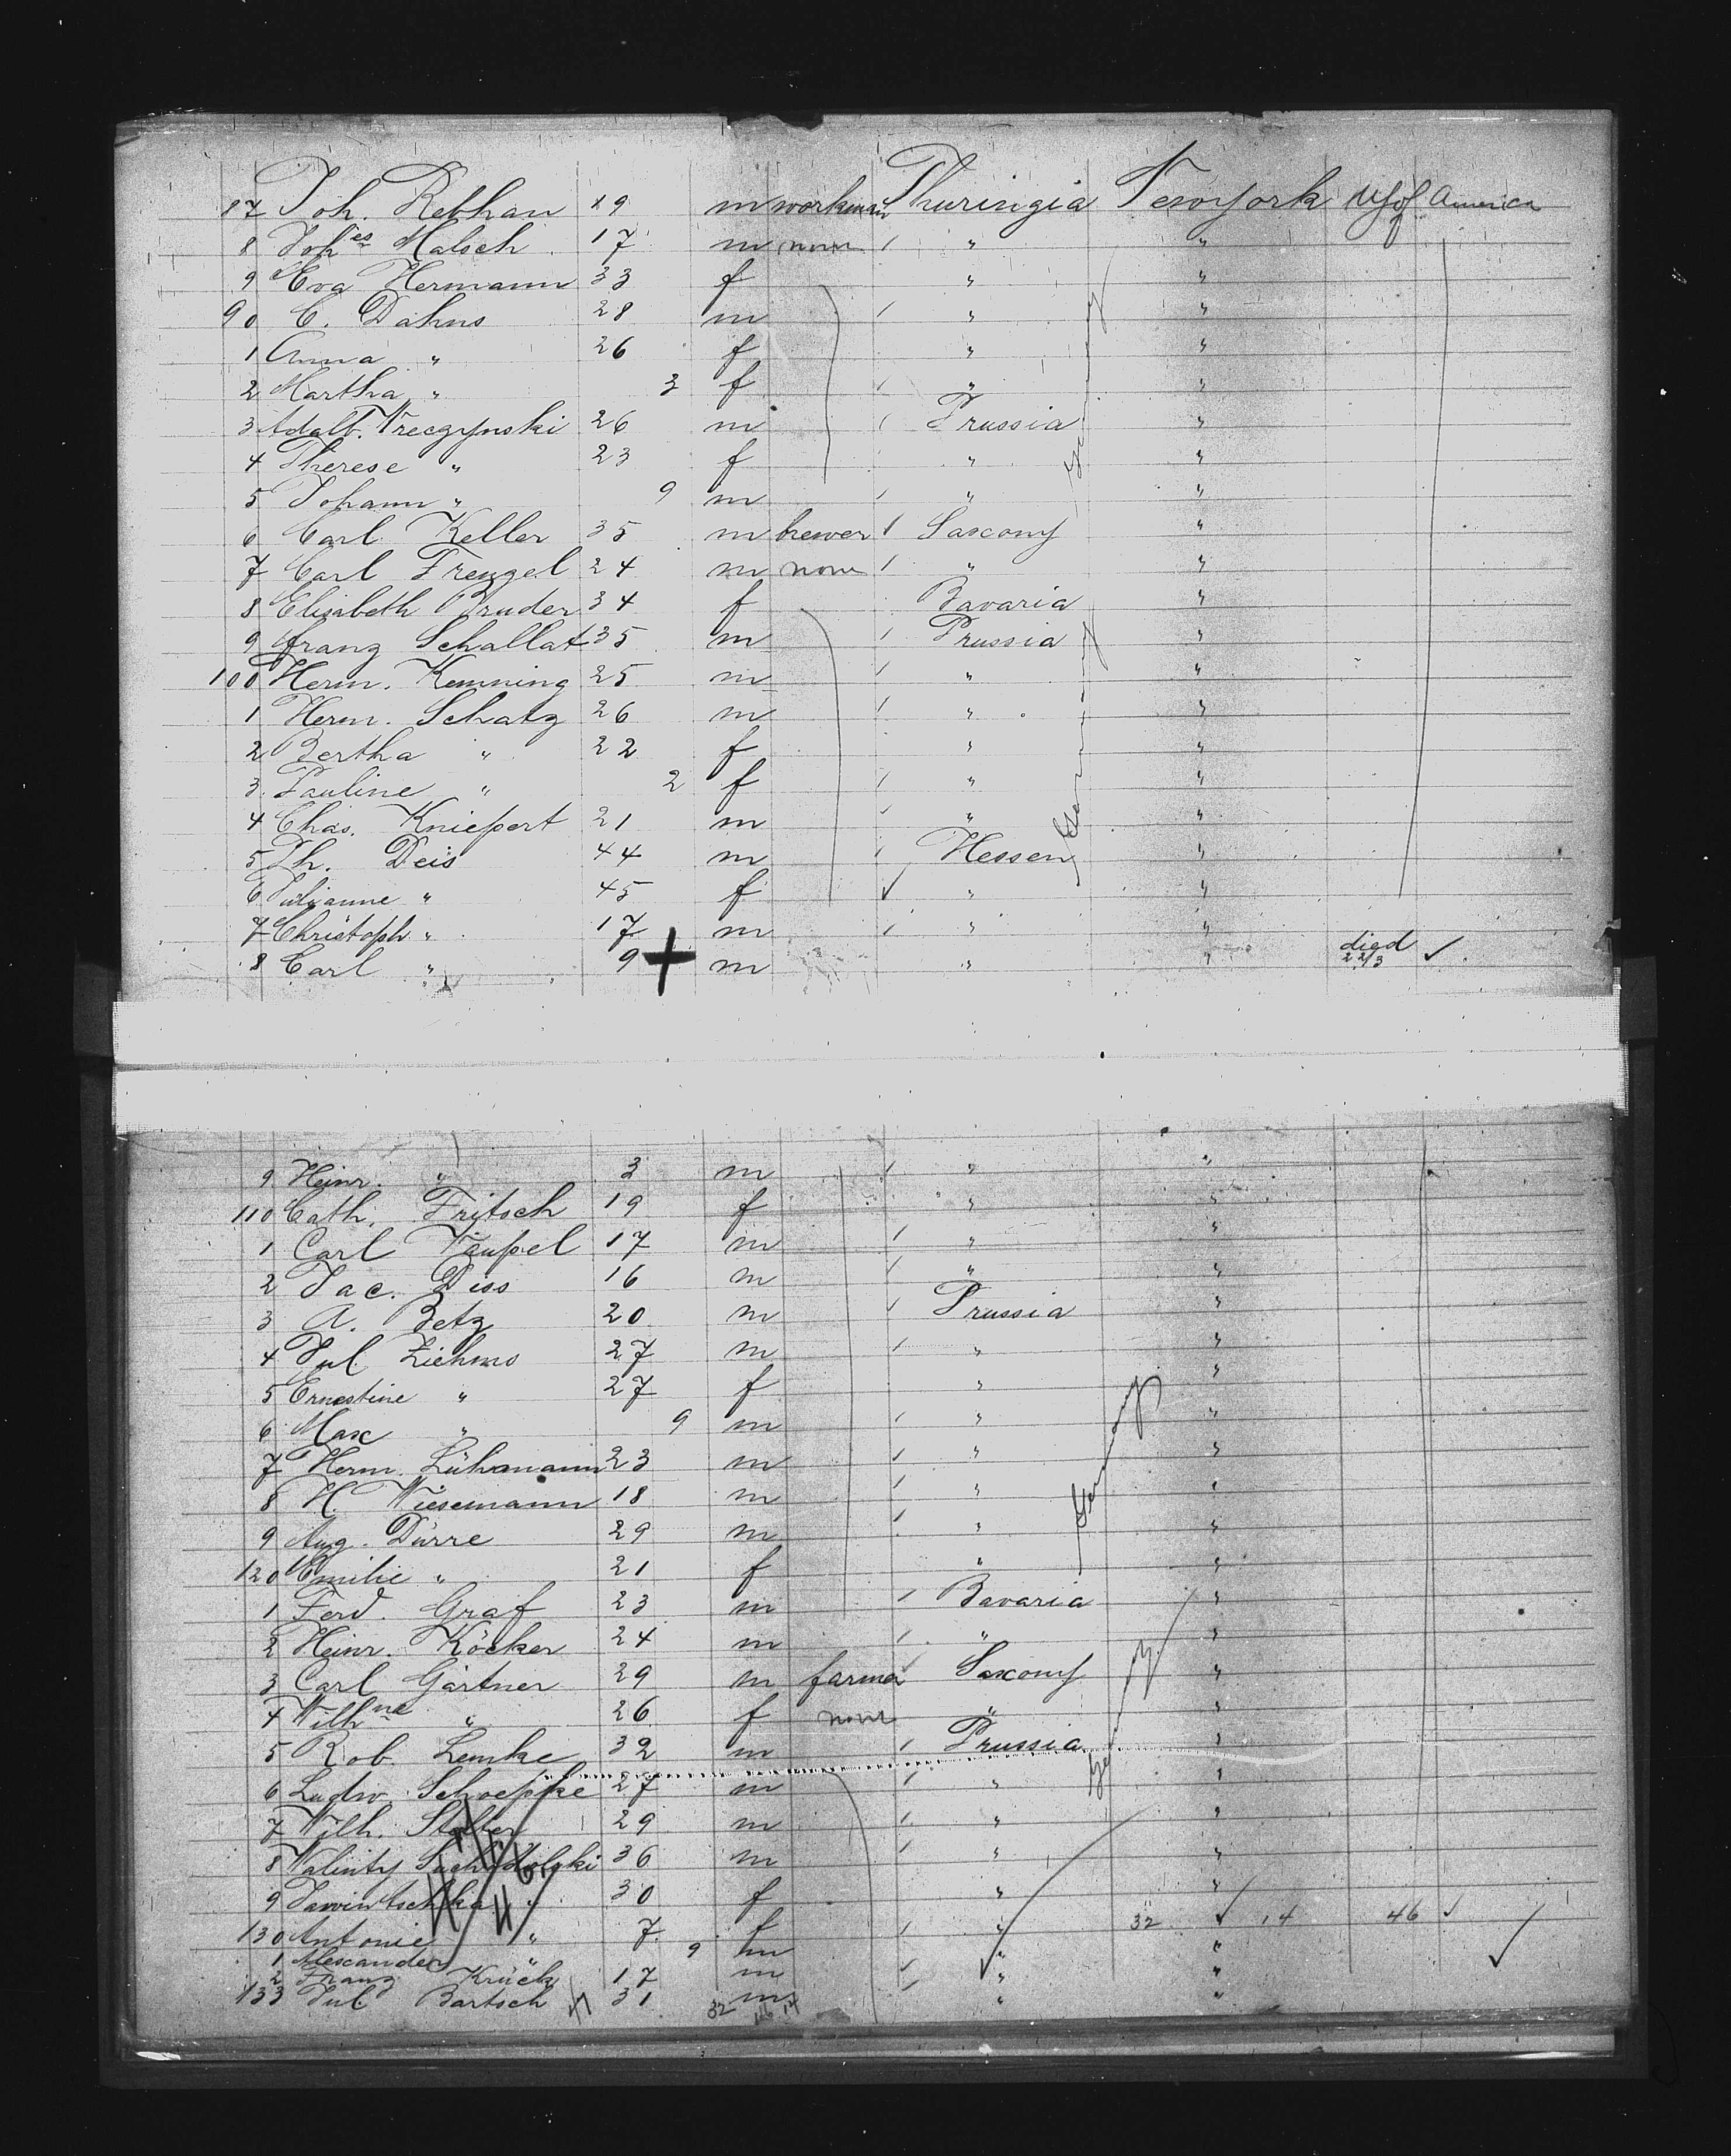 87 Joh. Rebhan 19 m workman Thuringia Newyork US of America
8 Joh.es Malsch 17 m none " "
9 Eva Hermann 33 f " "
90 C. Dahns 28 m " "
1 Anna " 26 f " "
2 Martha " 3 f " "
3 Adalb. Wreczynski 26 m Prussia "
4 Therese " 23 f " "
5 Johann " 9 m " "
6 Carl Keller 35 m brewer Saxony "
7 Carl Frenzel 24 m none " "
8 Elisabeth Bruder 34 f Bavaria "
9 Franz Schallat 35 m Prussia "
100 Herm. Kemning 25 m " "
1 Herm. Schatz 26 m " "
2 Bertha " 22 f " "
3 Pauline " 2 f " "
4 Chas. Kniepert 21 m " "
5 Ph. Deis 44 m Hessen "
6 Julianne " 45 f " "
7 Christoph " 17 m " "
8 Carl " 9 + m " " died 22/3
9 Heinr. " 3 m " "
110 Cath. Fritsch 19 f " "
1 Carl Vaupel 17 m " "
2 Jac. Diss 16 m " "
3 A. Betz 20 m Prussia "
4 Jul. Ziehms 27 m " "
5 Ernestine " 27 f " "
6 Max " 9 m " "
7 Herm. Lühmann 23 m " "
8 H. Wiesemann 18 m " "
9 Aug. Dürre 29 m " "
120 Emilie " 21 f " "
1 Ferd. Graf 23 m Bavaria "
2 Heinr. Köcker 24 m " "
3 Carl Gärtner 29 m farmer Saxony "
4 Wilh.ne " 26 f none " "
5 Rob. Lemke 32 m Prussia "
6 Ludw. Schoepke 27 m " "
7 Wilh. Stolter 29 m " "
8 Walinty 36 m " "
9 " 30 f " "
130 Antonie " 7 f " 32 14 46
1 Alexander " 9 m " "
2 Franz Krück 17 m " "
133 Jul. Bartsch 31 m " "
32 14